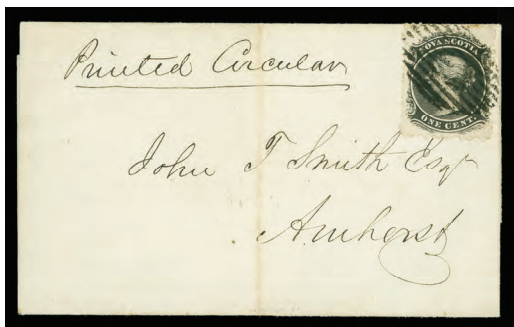 Printed Circular
NOVA SCOTIA
ONE CENT.
John T Smith Esqr
Amherst